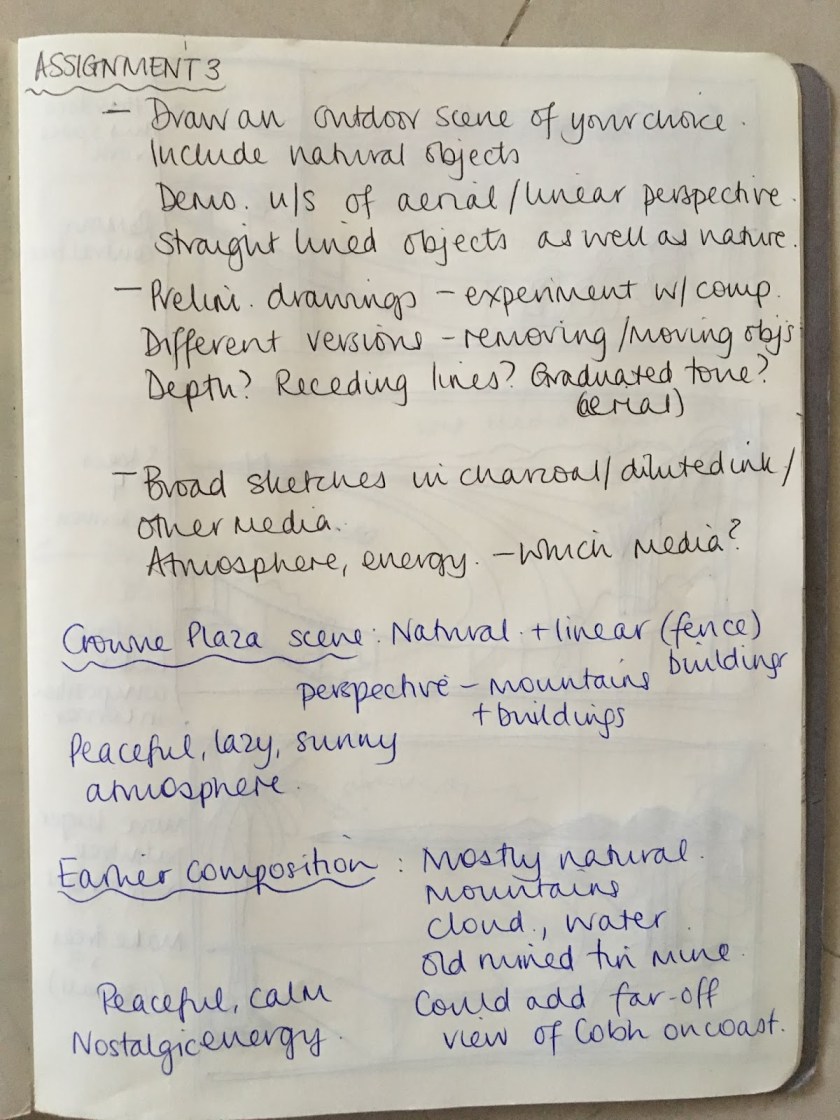 ASSIGNMENT 3
- Draw an outdoor scene of your choice.
Include natural objects
Demo. u/s of aerial/linear perspective.
Straight lined objects as well as nature.
- Prelim. drawings - experiment w/ comp.
Different versions - removing/moving objs
Depth? Receding lines? Graduated tone?
(aerial)
- Broad sketches in charcoal/diluted ink/
other media.
Atmosphere, energy. - Which media?
Crowne Plaza scene: Natural. + linear (fence)
buildings
perspective - mountains
+ buildings
Peaceful, lazy, sunny
atmosphere.
Earlier composition : Mostly natural.
Mountains
cloud., water.
old ruined tin mine.
Peaceful, calm Could add far-off
Nostalgic energy. view of Cobh on coast.